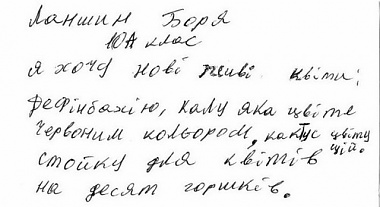 Ланшин Боря
10А клас
я хочу нові живі квіти:
дефінбахію, калу яка цвіте
червоним кольором, кактус цвіту
щій.
стойку для квітів
на десят горшків.